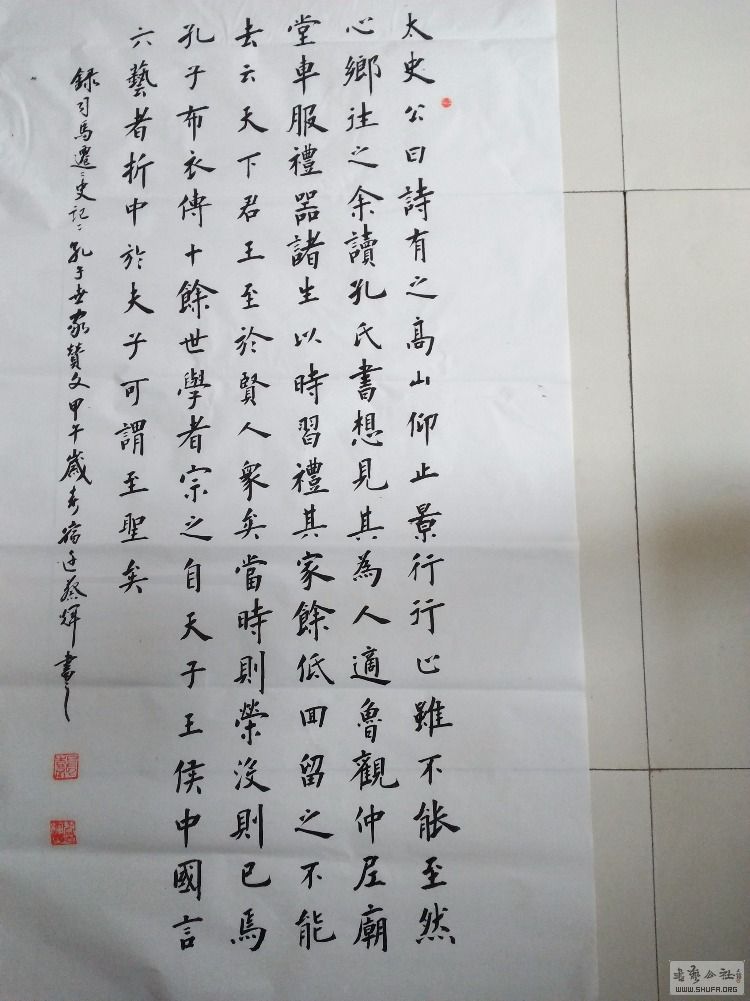 太史公曰詩有之高山仰止景行行止雖不能至然
心鄉往之余讀孔氏書想見其為人適魯觀仲尼廟
堂車服禮器諸生以時習禮其家餘低回留之不能
去云天下君王至於賢人衆矣當時則榮沒則已焉
孔子布衣傳十餘世學者宗之自天子王侯中國言
六藝者折中於夫子可謂至聖矣
錄司馬遷史記孔子世家贊文甲午歲春宿迁蔡輝書之
书艺公社
WWW.SHUFA.ORG